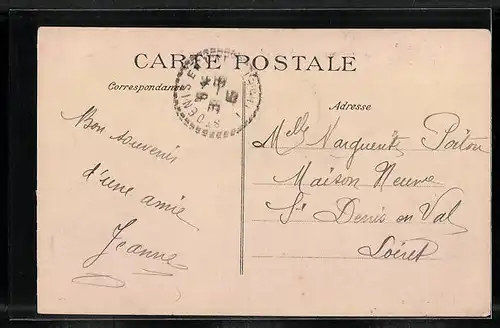 CARTE POSTALE
Correspondance
Adresse
Bon souvenir
d'une amie
Jeanne
Melle Marguerite
Maison Neuve
St Denis en Val
Loiret